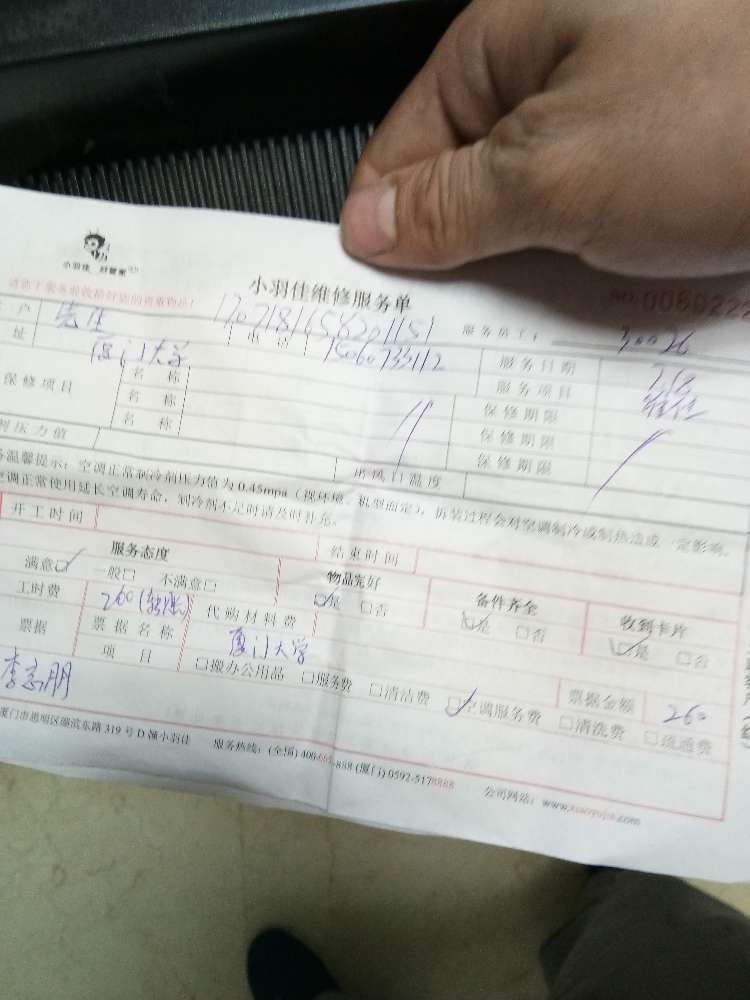 小羽佳 好管家
小羽佳维修服务单
NO.0060222
户 先生 1707181458201151 服务员工: 30026
址 厦门大学 电话 15060733112 服务日期 7.18
保修项目 名称 服务项目 维修
名称 保修期限
名称 保修期限
保修期限
压力值 出风口温度
温馨提示:空调正常制冷剂压力值为0.45mpa(视环境、机型而定),拆装过程会对空调制冷或制热造成一定影响。
空调正常使用延长空调寿命,制冷剂不足时请及时补充。
开工时间 结束时间
服务态度 物品完好 备件齐全 收到卡片
满意☑ 一般□ 不满意□ ☑是 □否 ☑是 □否 ☑是 □否
工时费 260(转账) 代购材料费
票据 票据名称 厦门大学 票据金额 260
项目 □搬办公用品 □服务费 □清洁费 ☑空调服务费 □清洗费 □疏通费
李志朋
厦门市思明区湖滨东路319号D幢小羽佳 服务热线:(全国)400 888 (厦门)0592-5178888 公司网站:www.xiaoyujia.com